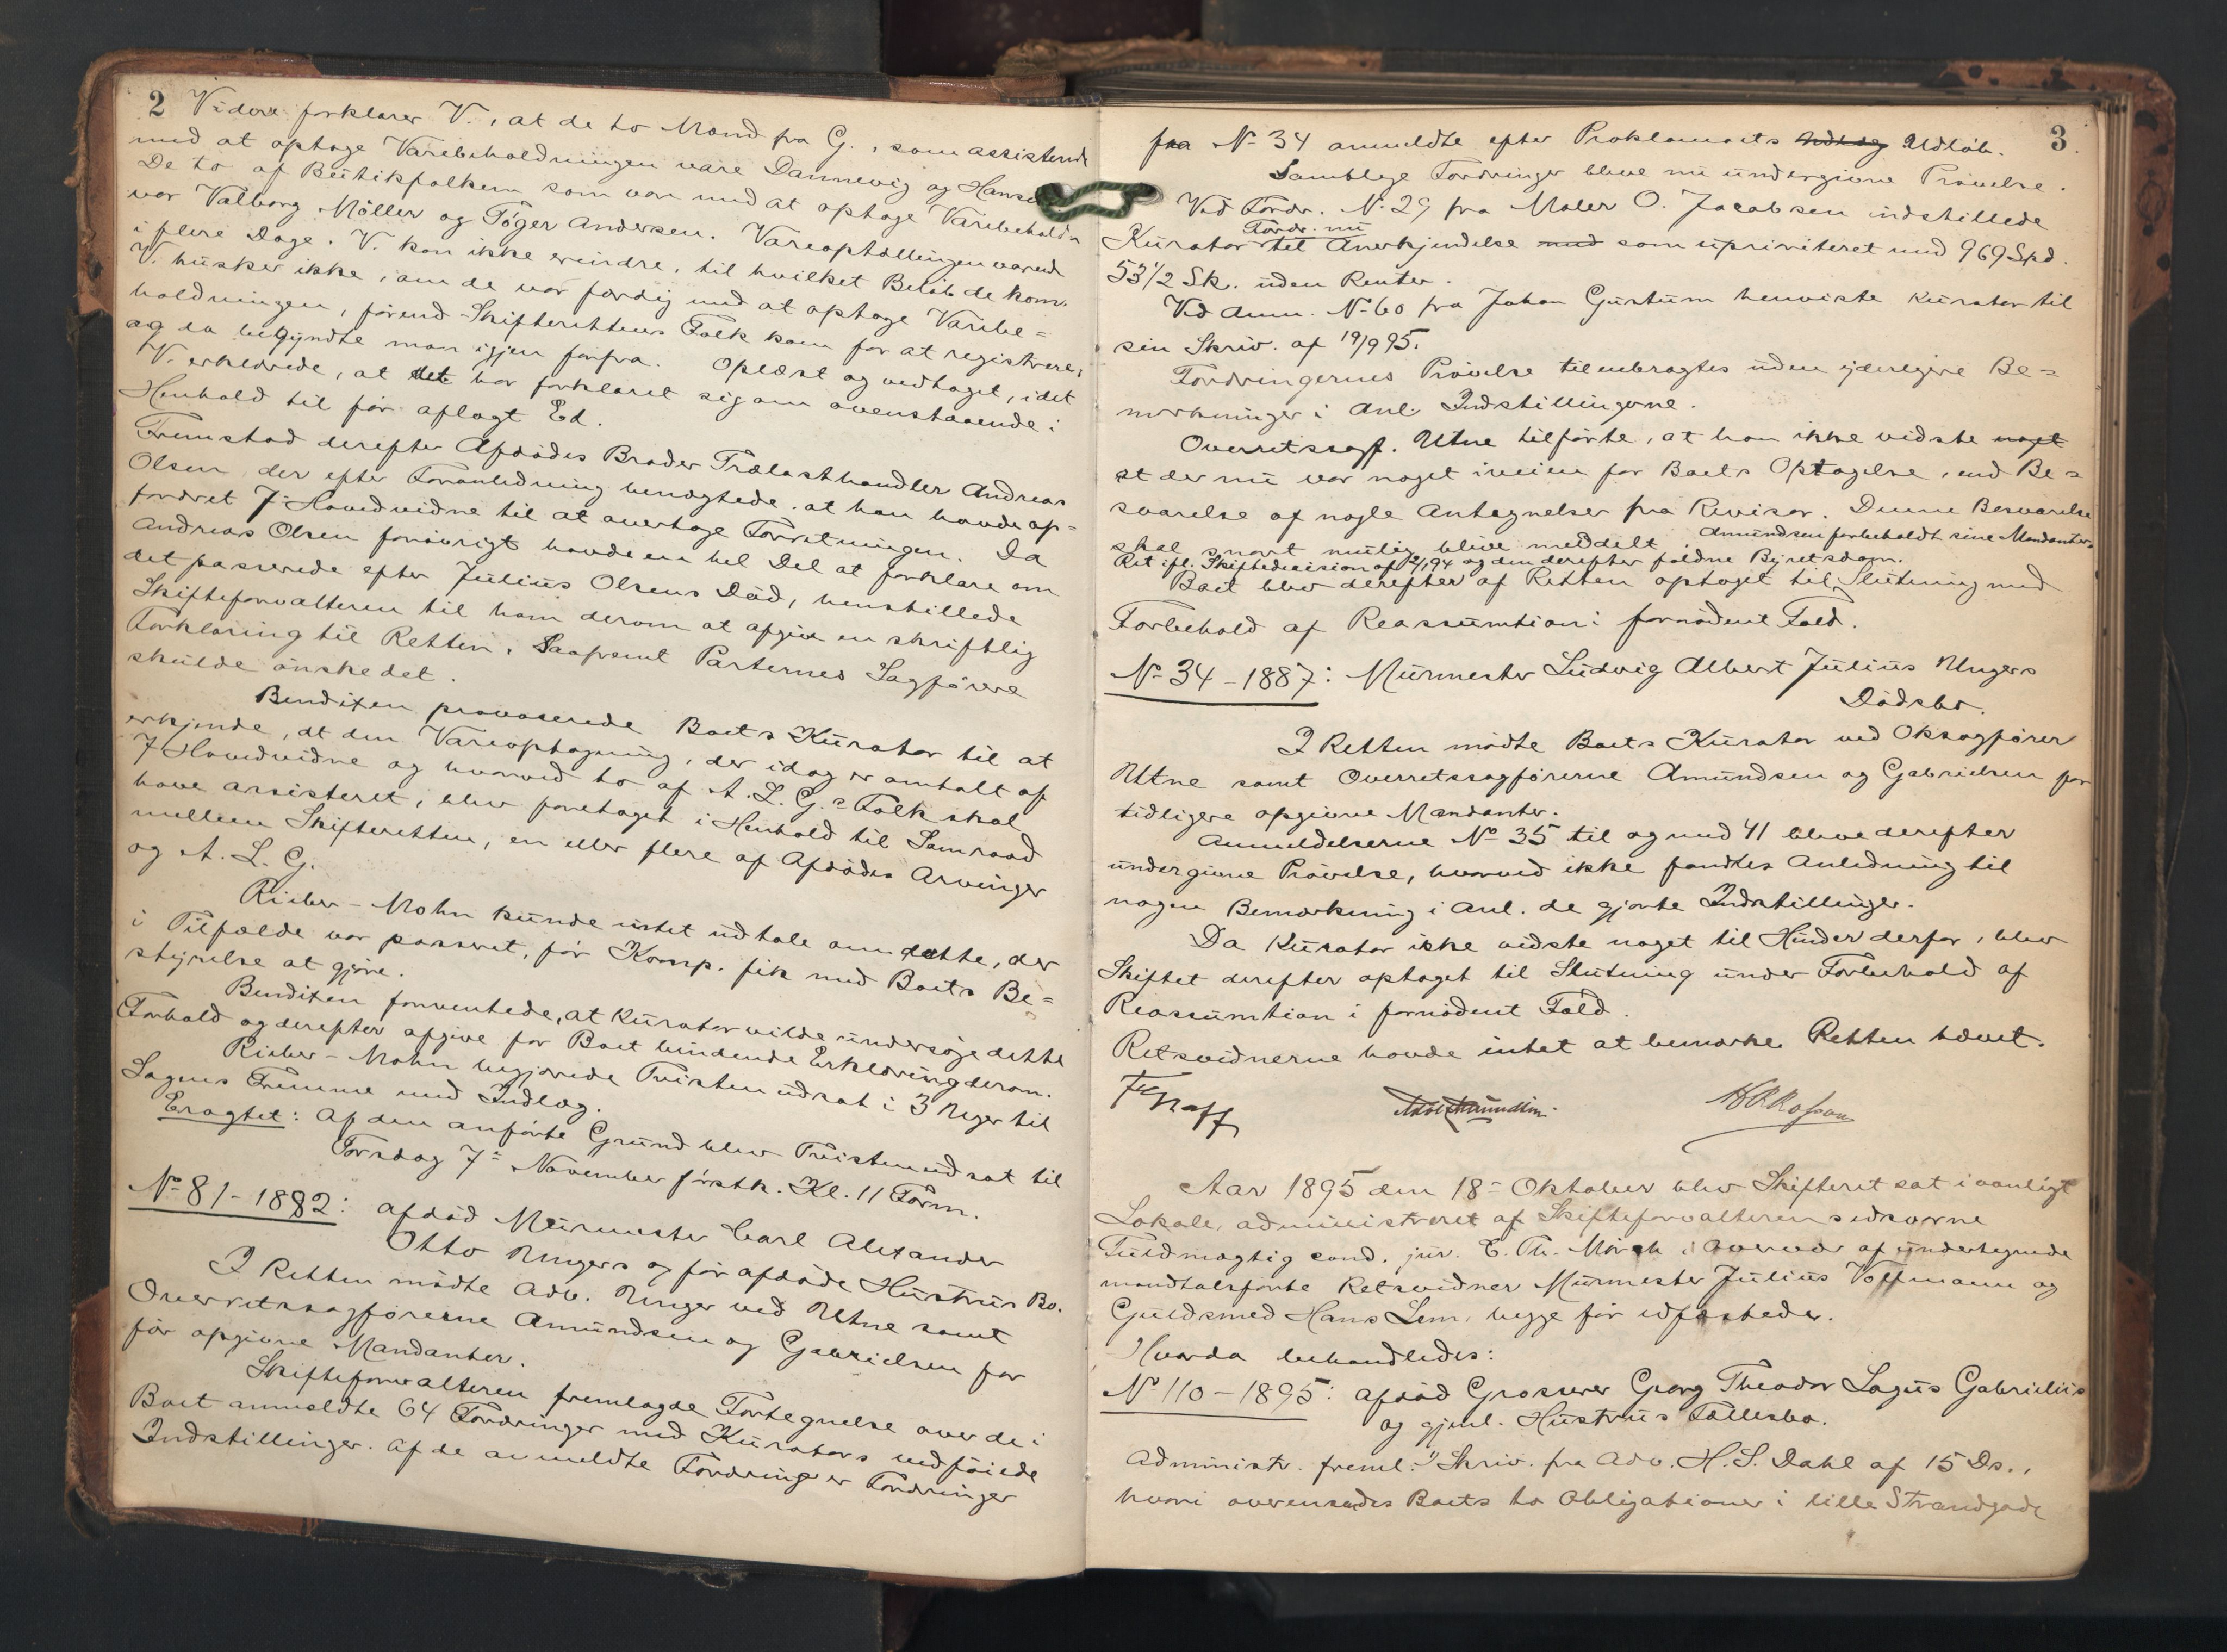 2
Videre forklarer V., at de to Mænd fra G., som assisterede
med at optage Varebeholdningen vare Dannevig og Hansen
De to af Butikfolkene som var med at optage Varebeholdn
var Valborg Møller og Tøger Andersen. Vareoptællingen varede
i flere Dage. V. kan ikke erindre, til hvilket Beløb de kom.
V. husker ikke, om de var færdig med at optage Varebe=
holdningen, førend Skifterettens Folk kom for at registrere,
og da begyndte man igjen forfra. Oplæst og vedtaget, idet
V. erklærede, at det har forklaret sig om ovenstaaende i
Henhold til før aflagt Ed.
Fremstod derefter Afdødes Broder Trælasthandler Andreas
Olsen, der efter Foranledning benægtede, at han havde op=
fordret 7 Hovedvidne til at overtage Forretningen. Da
Andreas Olsen forøvrigt havde en hel Del at forklare om
det passerede efter Julius Olsens Død, henstillede
Skifteforvalteren til ham derom at afgive en skriftlig
Forklaring til Retten, saafremt Parternes Sagførere
skulde ønske det.
Bendixen provocerede Boets Kurator til at
erkjende, at den Vareoptagning, der idag er omtalt af
7 Hovedvidne og hvorved to af A. L. G.s Folk skal
have assisteret, blev foretaget i Henhold til Samraad
mellem Skifteretten, en eller flere af Afdødes Arvinger
og A. L. G.
Rieber-Mohn kunde intet udtale om dette, der
i Tilfælde var passeret, før Komp. fik med Boets Be=
styrelse at gjøre.
Bendixen forventede, at Kurator vilde undersøge dette
Forhold og derefter afgive for Boet bindende Erklæring derom.
Rieber-Mohn begjærede Tvisten udsat i 3 Uger til
Sagens Fremme med Indlæg.
Eragtet: Af den anførte Grund blev Tvisten udsat til
Torsdag 7de November førstk. Kl. 11 Form.
No 81-1882: Afdød Murmester Carl Alexander
Otto Ungers og før afdøde Hustrus Bo.
I Retten mødte Adv. Unger ved Utne samt
Overretssagførerne Amundsen og Gabrielsen for
før opgivne Mandanter.
Skifteforvalteren fremlagde Fortegnelse over de i
Boet anmeldte 64 Fordringer med Kurators vedføiede
Indstillinger. Af de anmeldte Fordringer er Fordringer
3.
fra No 34 anmeldte efter Proklamaets Udløb.
Samtlige Fordringer bleve nu undergivne Prøvelse.
Ved Fordr. No 29 fra Maler O. Jacobsen indstillede
Fordr. nu
Kurator til Anerkjendelse med som uprivitert med 969 Spd.
53 1/2 Sk. uden Renter.
Ved Anm. No 60 fra Johan Gurtum henviste Kurator til
sin Skriv. af 19/9 95.
Fordringernes Prøvelse tilendebragtes uden yderligere Be=
mærkninger i Anl. Indstillingerne.
Overretssagf. Utne tilførte, at han ikke vidste noget
at der nu var noget iveien for Boets Optagelse, end Be=
svarelse af nogle Antegnelser fra Revisor. Denne Besvarelse
skal snart mulig blive meddelt. Amundsen forbeholdt sine Mandanters
Ret ifl. Skiftedecision af 2/1 94 og den derefter faldne Byretsdom.
Boet blev derefter af Retten optaget til Slutning med
Forbehold af Reassumtion i fornødent Fald.
No 34-1887: Murmester Ludvig Albert Julius Ungers
Dødsbo.
I Retten mødte Boets Kurator ved Oksagfører
Utne samt Overretssagførerne Amundsen og Gabrielsen for
tidligere opgivne Mandanter.
Anmeldelserne No 35 til og med 41 bleve derefter
undergivne Prøvelse, hvorved ikke fandtes Anledning til
nogen Bemærkning i Anl. de gjorte Indstillinger.
Da Kurator ikke vidste noget til Hinder derfor, blev
Skiftet derefter optaget til Slutning under Forbehold af
Reassumtion i fornødent Fald.
Retsvidnerne havde intet at bemærke. Retten hævet.
Aar 1895 den 18de Oktober blev Skifteret sat i vanligt
Lokale, administreret af Skifteforvalterens edsvorne
Fuldmægtig cand. jur. E. Th. Mörch i Overvær af undertegnede
mandtalsførte Retsvidner Murmester Julius Voltmann og
Guldsmed Hans Lem, begge før edfæstede.
Hvorda behandledes:
No 110-1895: Afdød Grosserer Georg Theodor Lagus Gabrielsens
og gjenl. Hustrus Fællesbo.
Administr. freml. 1) Skriv. fra Adv. H. S. Dahl af 15 Ds.,
hvori oversendes Boets to Obligationer i lille Strandgade